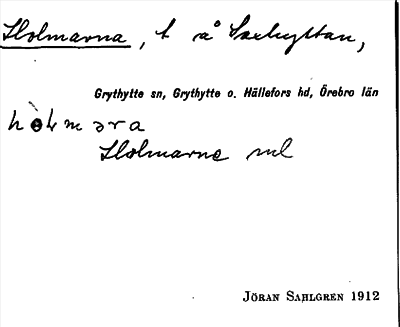 Holmarna, t å Saxhyttan,
Grythytte sn, Grythytte o. Hällefors hd, Örebro län
Holmarne ml
JÖRAN SAHLGREN 1912